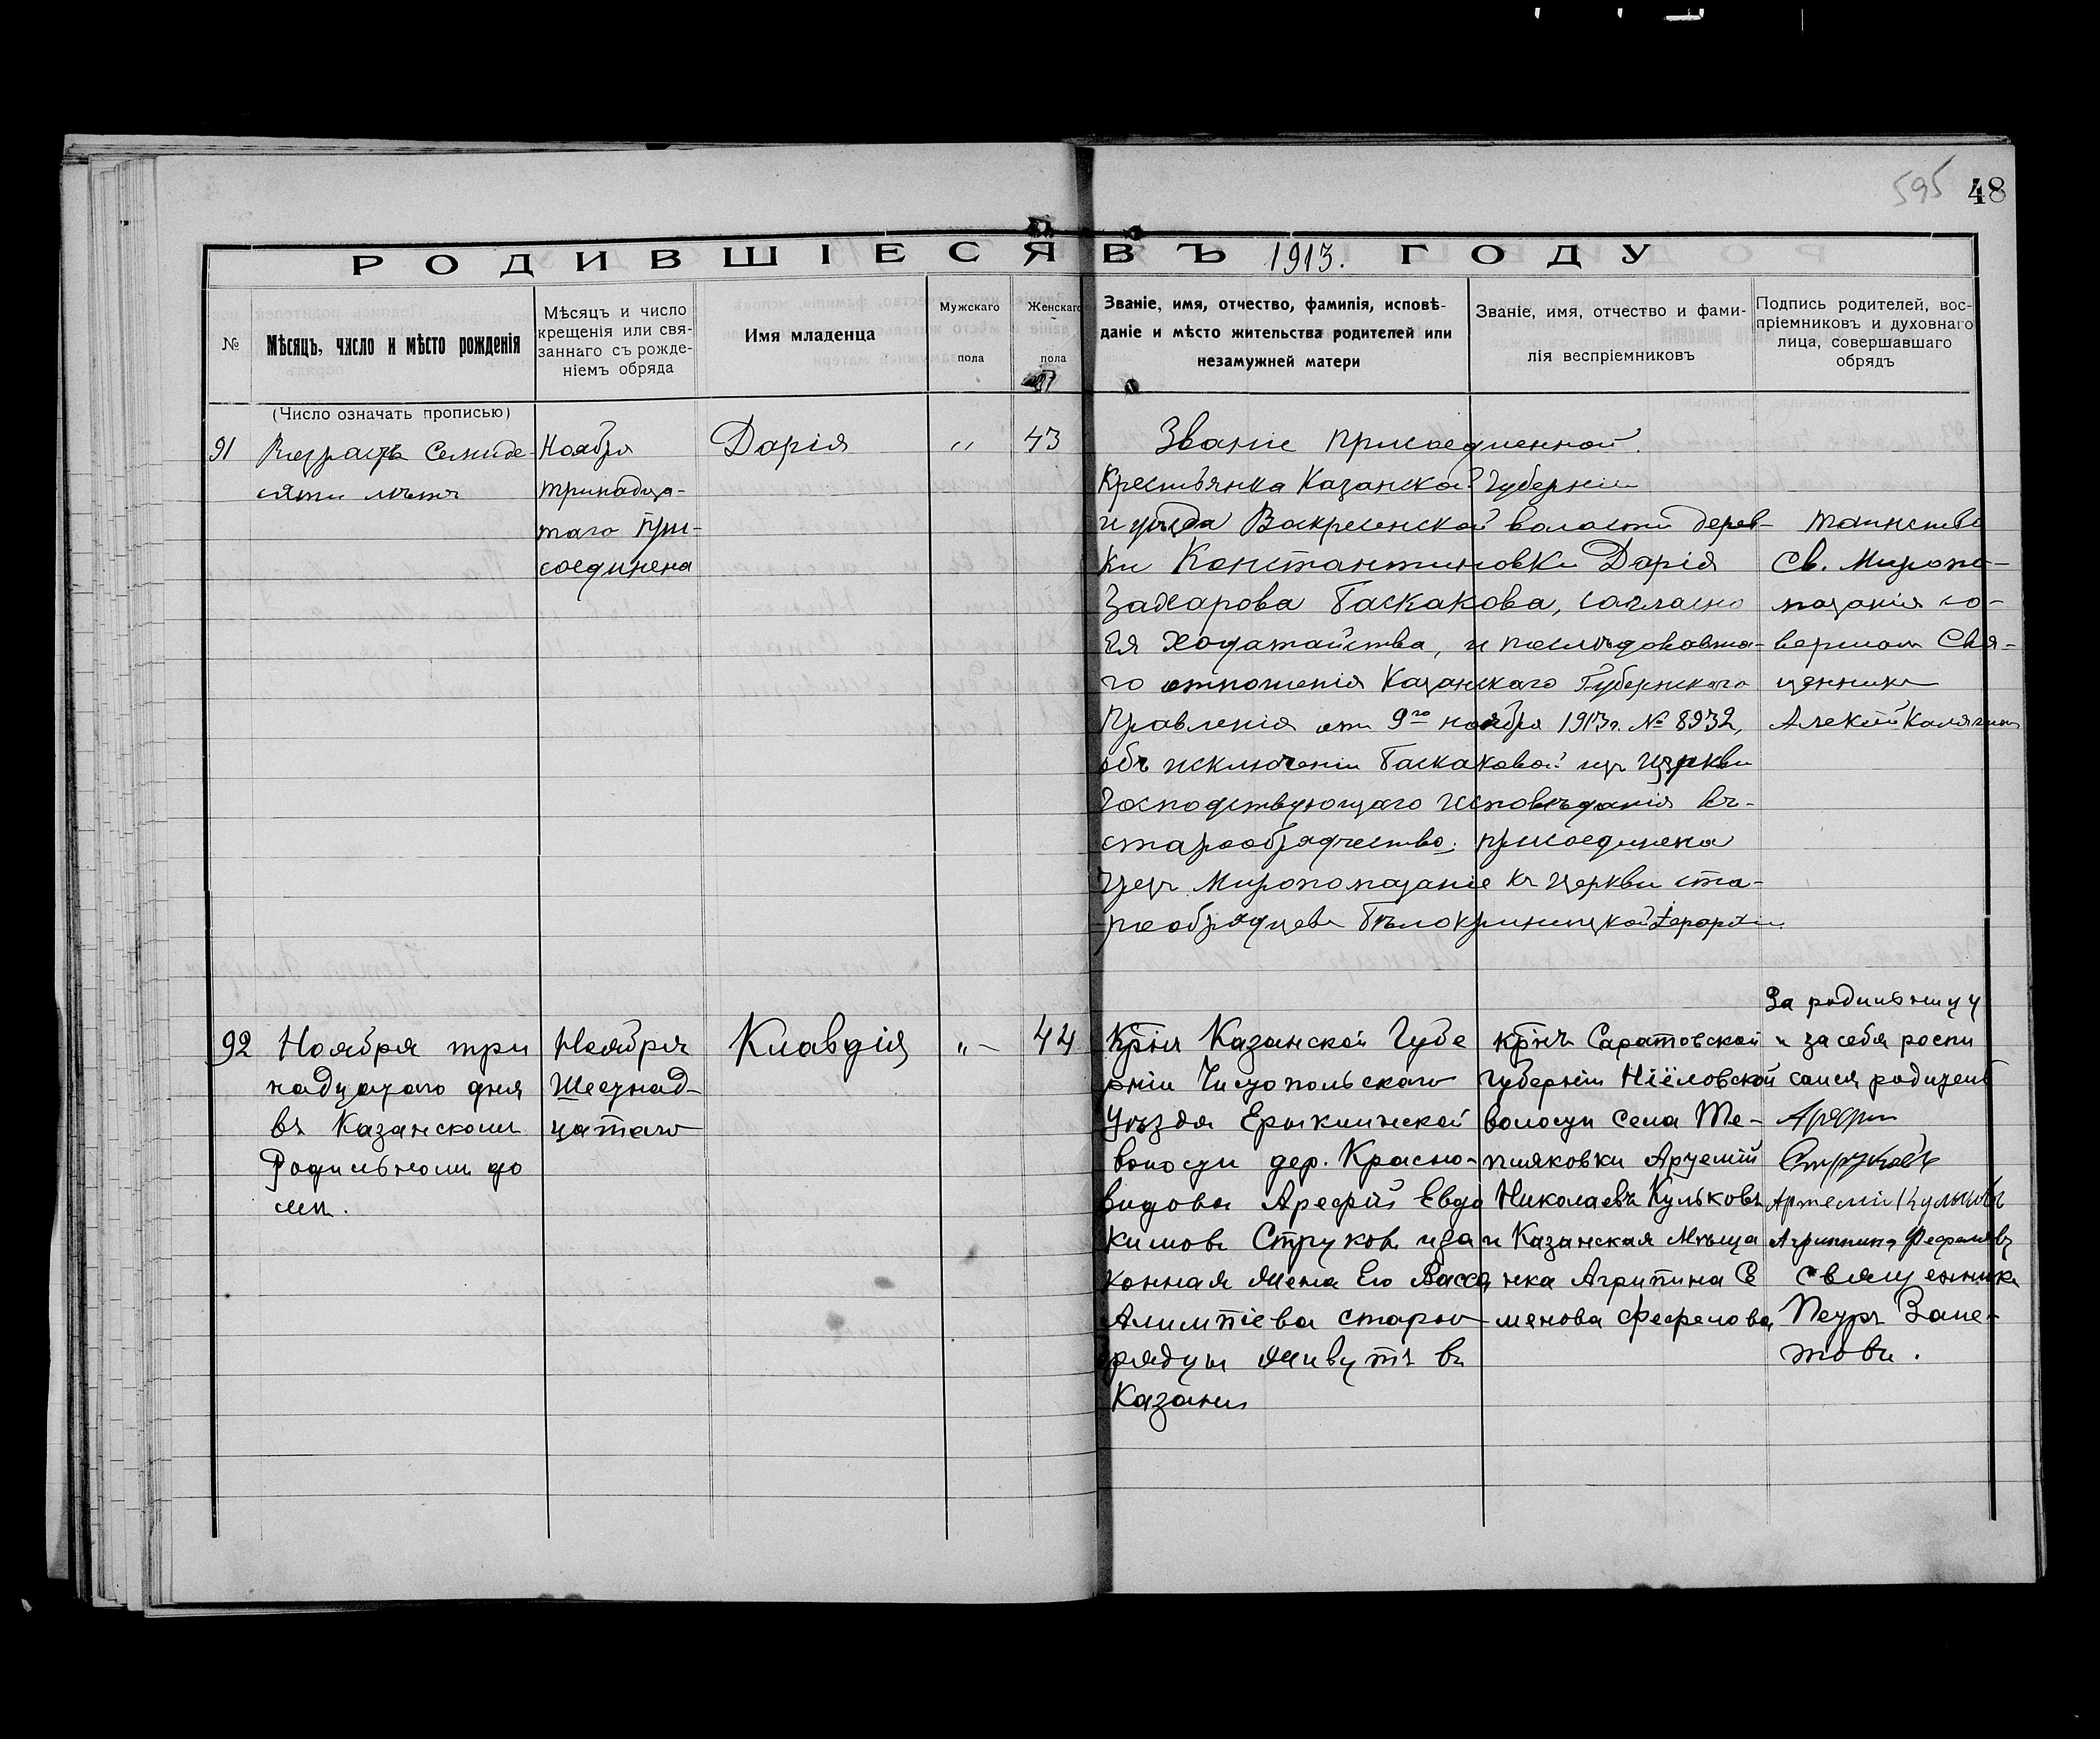 595 48
РОДИВШІЕСЯ ВЪ 1913. ГОДУ
№
Мѣсяцъ, число и мѣсто рожденія
Мѣсяцъ и число
крещенія или свя-
заннаго съ рожде-
ніемъ обряда
Имя младенца
Мужскаго
пола
Женскаго
пола
Званіе, имя, отчество, фамилія, исповѣ-
даніе и мѣсто жительства родителей или
незамужней матери
Званіе, имя, отчество и фами-
лія веспріемниковъ
Подпись родителей, вос-
пріемниковъ и духовнаго
лица, совершавшаго
обрядъ
(Число означать прописью)
91
Возрастъ Семиде-
сяти лѣтъ
Ноября
тринадца-
таго при-
соединена
Дарія
"
43
Званіе присоединенной.
Крестьянка Казанской Губерніи
и уѣзда Воскресенской волости дерев-
ки Константиновки Дарія
Захарова Баскакова, согласно
ея ходатайства, и послѣдовавша-
го отношенія Казанскаго Губернскаго
Правленія отъ 9го ноября 1913г. № 8932,
объ исключеніи Баскаковой изъ церкви
господствующаго исповѣданія въ-
старообрядчество, присоединена
чрезъ Миропомазаніе къ церкви ста-
рообрядцевъ Бѣлокриницкой Іерархіи.
таинство
Св. Миропо-
мазанія со-
вершалъ Свя-
щенникъ
Алексій Калягинъ
92
Ноября три
надцатого дня
въ Казанскомъ
Родильномъ до
мѣ.
Ноября
Шестнад-
цатаго
Клавдія
"-
44
Крнъ Казанской Губе
рніи Чистопольскаго
Уѣзда Ерыклинской
волости дер. Красно-
видова Арефій Евдо
кимовъ Струковъ и за
конная жена Его Васса
Алимпіева старо
рядцы живутъ въ
Казани
крнъ Саратовской
губерніи Ніёловской
волости села Те-
пляковки Артемій
Николаевъ Кульковъ
и Казанская Мѣща
нка Агрипина Се
менова Фефелова
За родильницу
и за себя роспи
сался родитель
Арефи
Струковъ
Артеміи Кульковъ
Агриппина Фефелова
священникъ
Петръ Зале-
товъ.